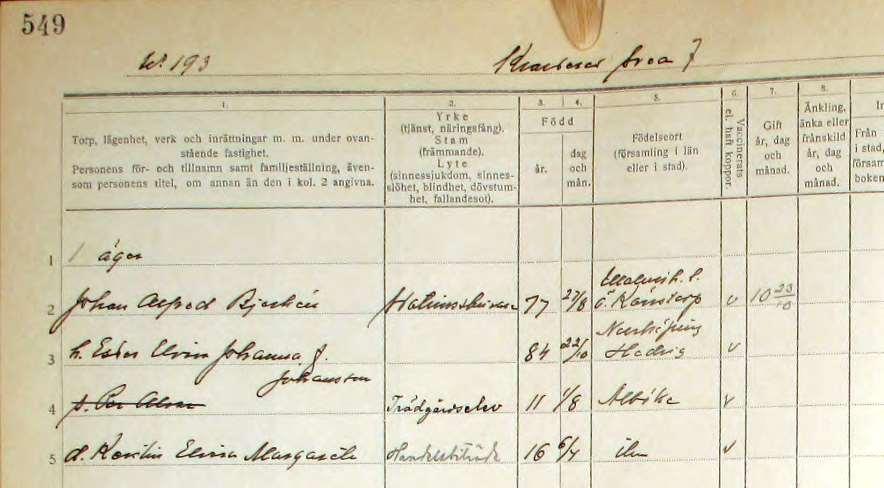 549
No. 193
1.
Torp, lägenhet, verk och inrättningar m. m. under ovan-
stående fastighet.
Personens för- och tillnamn samt familjeställning, även-
som personens titel, om annan än den i kol. 2 angivna.
2.
Yrke
(tjänst, näringsfång).
Stam
(främmande).
Lyte
(sinnessjukdom, sinnes-
slöhet, blindhet, dövstum-
het, fallandesot).
3. 4.
Född
år.
dag
och
mån.
5.
Födelseort
(församling i län
eller i stad).
6.
Vaccinerats
el. haft koppor.
7.
Gift
år, dag
och
månad.
8.
Änkling,
änka eller
frånskild
år, dag
och
månad.
Från
i stad,
försam
boken
1 / äger
2 Johan Alfred 77 27/8 v 10 23/10
Norrköping
3 h. Ester Elvira Johanna f. 84 22/10 Hedvig v
Johansson
4 s. Per Trädgårdselev 11 1/8 v
5 d. Kerstin Elvira Margareta Handelsbiträde 16 6/4 ibm v